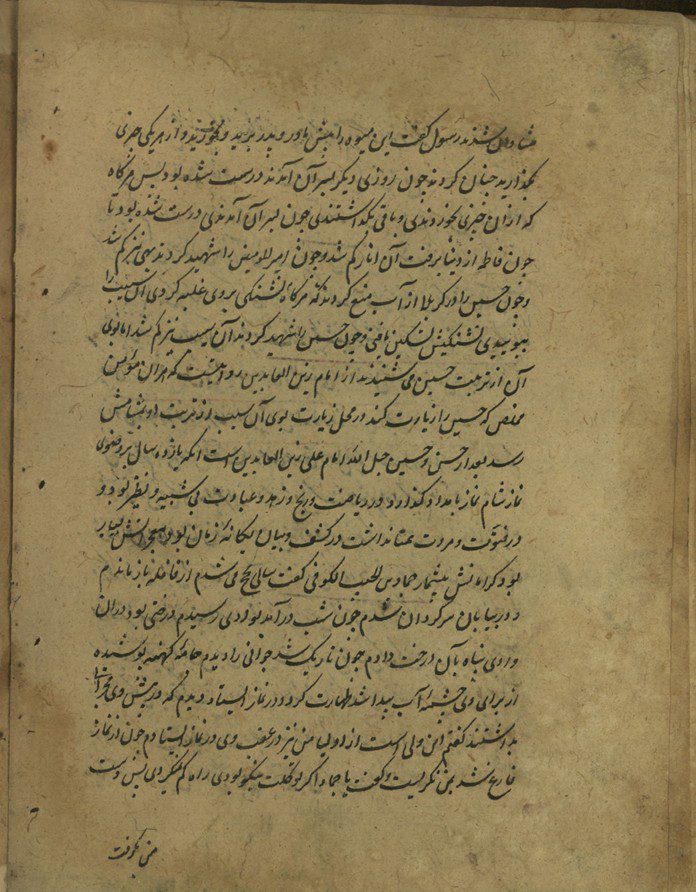 شادمان شدند رسول گفت این میوه را پیش مادر و پدر برید و بخورید و از هر یکی چیزی
بگذارید چنان کردند چون روزی دیگر بسر آن آمدند درست شده بود پس هرگاه
که از آن چیزی بخوردندی و باقی بگذاشتندی چون بسر آن آمدندی درست شده بود تا
چون فاطمه از دنیا برفت آن انار کم شد و چون امیرالمومنین را شهید کردند بهی نیز کم شد
و چون حسین را در کربلا از آب منع کردند که هرگاه تشنگی بر وی غلبه کردی آن سیب را
ببوییدی تشنگیش تسکین یافتی و چون حسین را شهید کردند آن سیب نیز کم شد اما بوی
آن از تربت حسین می شنیدند از امام زین العابدین روایتست که هر آن مؤمن
مخلص که حسین را زیارت کند در محل زیارت بوی آن سیب از تربت او بمشامش
رسد بعد از حسن و حسین حبل الله امام علی زین العابدین است آنکه یازده سال بر وضوی
نماز شام نماز بامداد گذارد و در ریاضت و رنج و زهد و عبادت بی شبیه و نظیر بود و
در فتوت و مروت همتا نداشت در کشف و بیان یگانۀ زمان بود و معجزاتش بسیار
بود و کراماتش بیشمار حماد بن الحبیب الکوفی گفت سالی بحج می شدم از قافله باز ماندم
و در بیابان سرگردان شدم چون شب درآمد بوادی رسیدم درختی بود در آن
وادی پناه بآن درخت دادم چون تاریک شد جوانی را دیدم جامۀ کهنه پوشیده
از برای وی چشمۀ آب پیدا شد طهارت کرد و در نماز ایستاد دیدم که در پیش وی محراب
بداشتند گفتم این ولی است از اولیا من نیز در عقب وی در نماز ایستادم چون از نماز
فارغ شد بمن نگریست و گفت یا حماد اگر توکلت نیکو بودی راه کم نکردی پس دست
من بگرفت